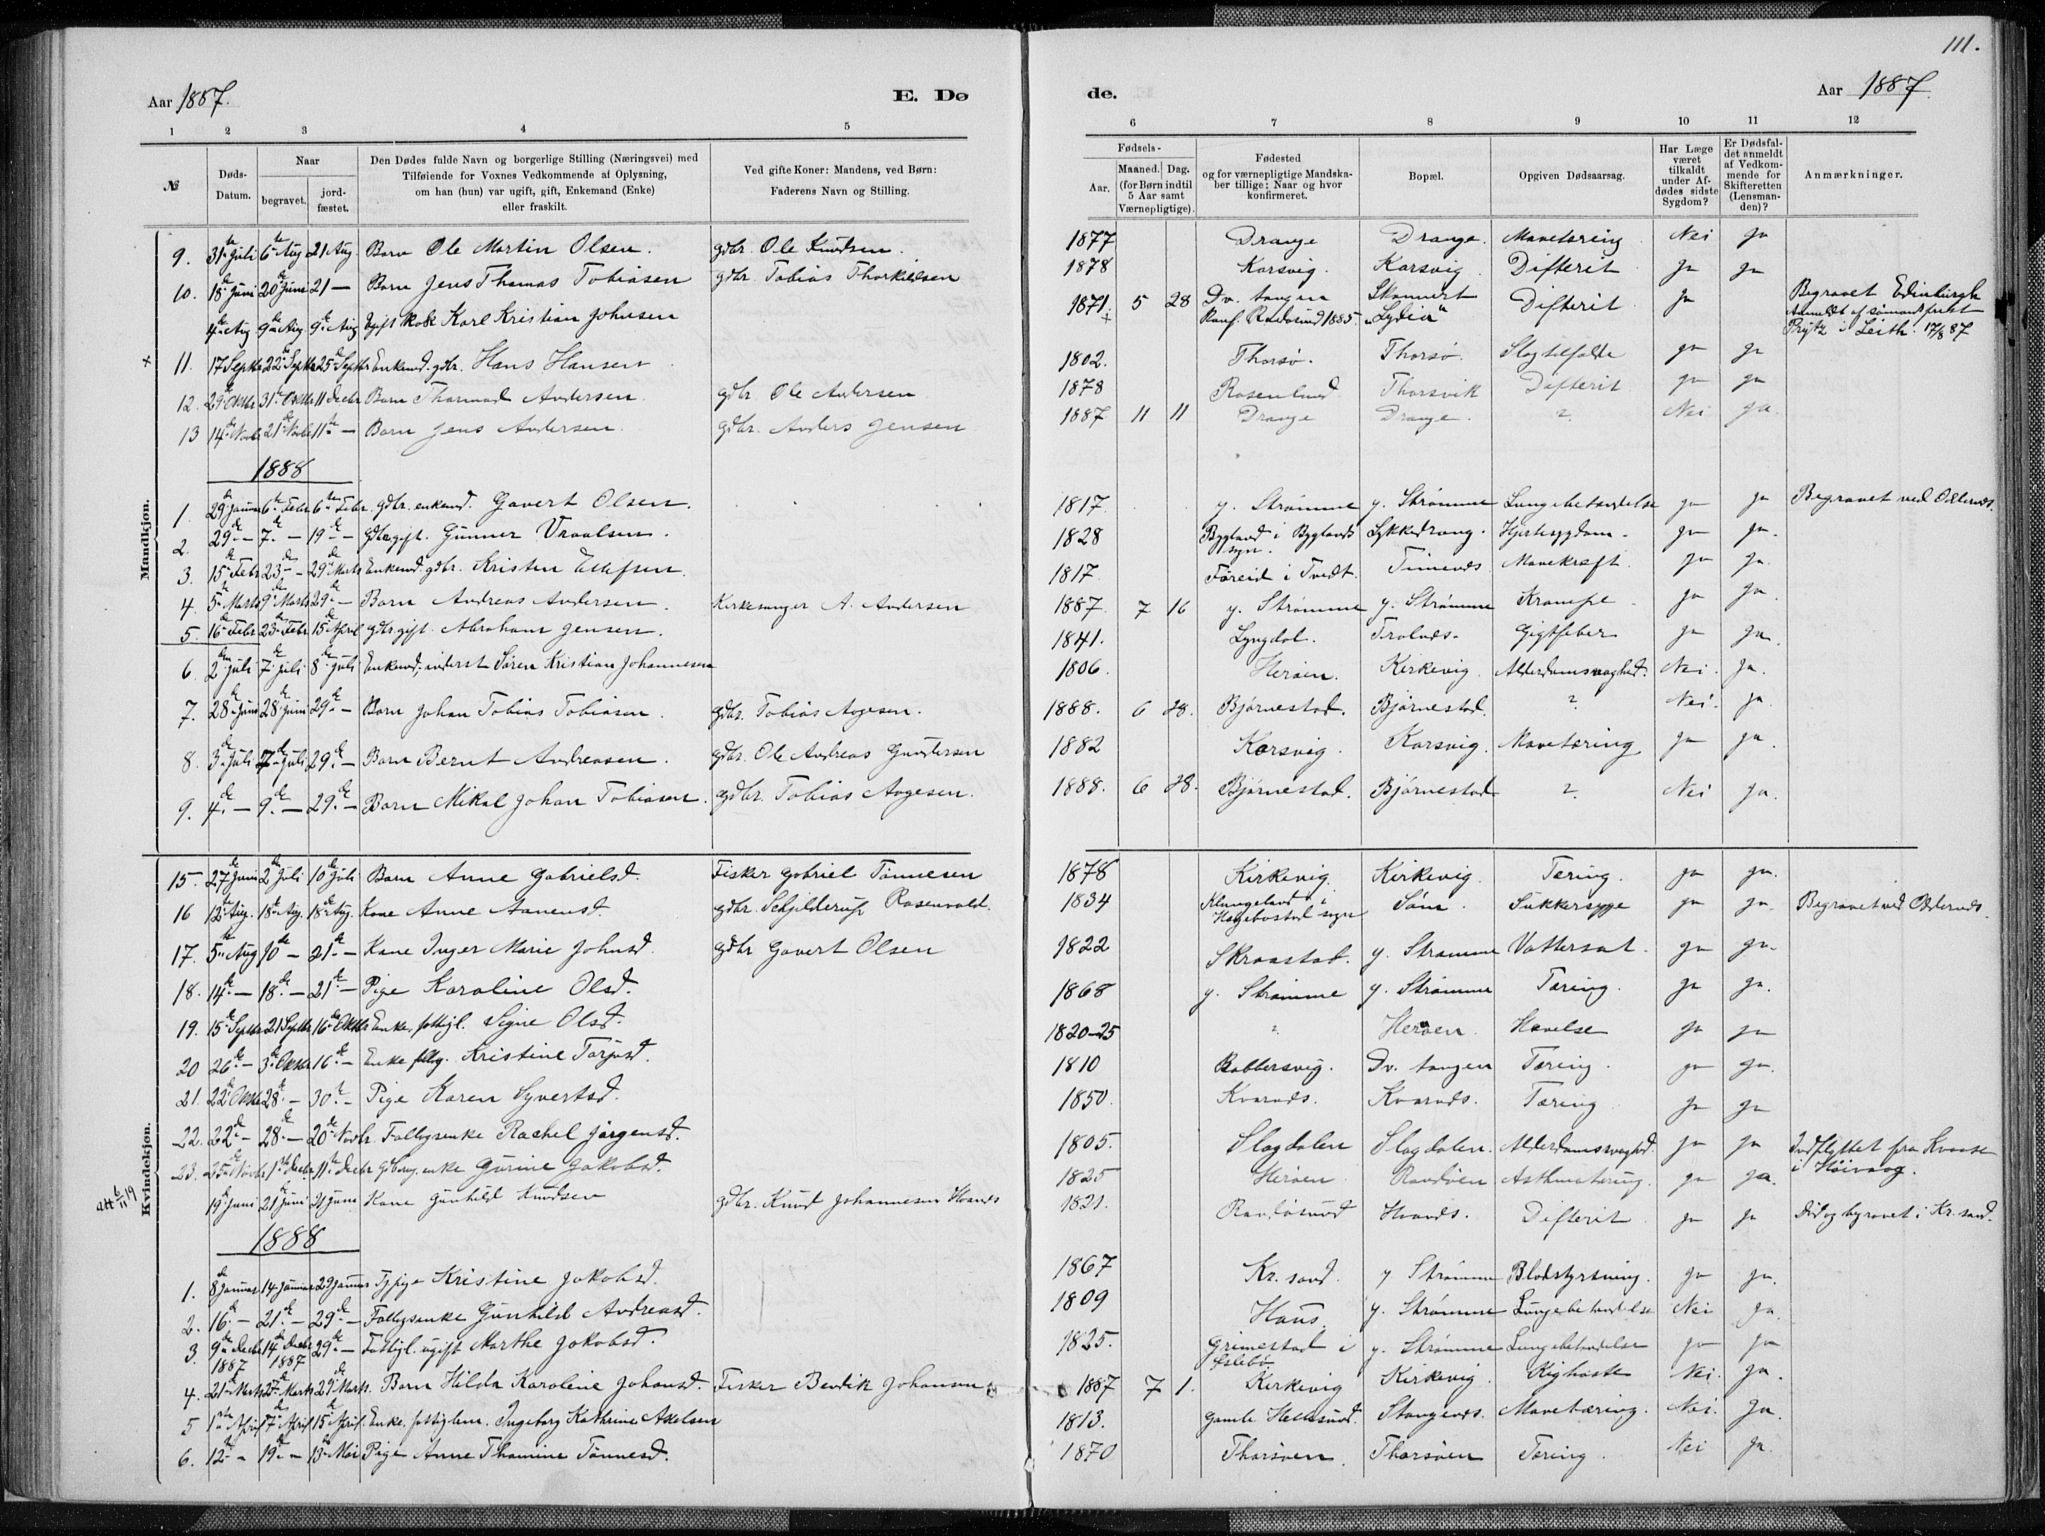 111.
Aar 1887.
E. Dø
de.
Aar 1887.
1 2 3 4 5 6 7 8 9 10 11 12
№
Døds-Datum.
Naar
begravet.
jord-fæstet.
Den Dødes fulde Navn og borgerlige Stilling (Næringsvei) med
Tilføiende for Voxnes Vedkommende af Oplysning,
om han (hun) var ugift, gift, Enkemand (Enke)
eller fraskilt.
Ved gifte Koner: Mandens, ved Børn:
Faderens Navn og Stilling.
Fødsels-
Aar.
Maaned.
Dag.
(for Børn indtil
5 Aar samt
Værnepligtige).
Fødested
og for værnepligtige Mandska-
ber tillige: Naar og hvor
konfirmeret.
Bopæl.
Opgiven Dødsaarsag.
Har Læge
været
tilkaldt
under Af-
dødes sidste
Sygdom?
Er Dødsfal-
det anmeldt
af Vedkom-
mende for
Skifteretten
(Lensman-
den)?
Anmærkninger.
Mandkjøn.
9. 31te Juli 6te Aug 21 Aug. Barn Ole Martin Olsen. gdbr. Ole Knudsen. 1877 Drange Drange. Mavetæring Nei ja
10. 18de Juni 20de Juni 21 — Barn Jens Thomas Tobiasen gdbr Tobias Thorkildsen 1878 Korsvig. Korsvig. Difterit ja ja
4de Aug 9de Aug 9de Aug Ugift Kok Karl Kristian Johnsen 1871 5 28 Dv. tangen Skonnert Difterit ja Begravet Edinburgh
Konf. Randøsund 1885. "Lydia" Anmeldt af sømandsprest
Prytz i Leith. 17/8 87
11. 17 Septbr 22de Septbr 25de Septbr Enkemd. gdbr. Hans Hansen 1802. Thorsø. Thorsø. Slagtilfælde ja ja
12. 29de Oktbr 31te Oktbr 11 Decbr Barn Thormod Andersen. gdbr. Ole Andersen 1878 Rosenlund Thorsvik Difterit ja ja
13 14de Novbr 21de Novbr 11te — Barn Jens Andersen. gdbr. Anders Jensen 1887 11 11 Drange Drange. ? Nei ja.
1888
1. 29de Januar 6te Febr 6te Febr. gdbr. enkemd. Govert Olsen. 1817. y. Strømme y. Strømme Lungebetændelse ja ja Begravet ved Oddernes.
2. 29de — 7de — 19de — Gdbr gift. Gunner Vraalsen. 1828 Bygland i Byglands sogn. Lykkedrang. Hjertesygdom. ja ja.
3. 15de Febr 23de — 29de Marts Enkemd. gdbr. Kristen Ellefsen. 1817. Føreid i Tvedt. Timenes Mavekræft. ja ja.
4. 5te Marts 9de Marts 29de — Barn Andreas Andersen. Kirkesanger A. Andersen 1887. 7 16 y. Strømme y. Strømme Krampe ja ja.
5. 16de Febr 23de Febr 15de April gdbr gift. Abraham Jensen. 1841. Lyngdal. Frølnes. Gigtfeber ja ja.
6. 2den Juli 7de Juli 8de Juli Enkemd. inderst Søren Kristian Johannesen 1806. Herøen. Kirkevig. Alderdomssvaghed. Nei. ja.
7. 28de Juni 28de Juni 29de — Barn Johan Tobias Tobiasen. gdbr. Tobias Aagesen. 1888. 6 28. Bjørnestad. Bjørnestad. ? Nei. ja.
8. 3de Juli 7de Juli 29de — Barn Bernt Andreasen. gdbr. Ole Andreas Gundersen 1882 Korsvig. Korsvig. Mavetæring ja ja.
9. 4de — 9de — 29de — Barn Mikal Johan Tobiasen. gdbr. Tobias Aagesen. 1888. 6 28. Bjørnestad. Bjørnestad ? Nei ja.
Kvindekjøn.
15. 27de Juni 2de Juli 10de Juli Barn Anne Gabrielsd. Fisker Gabriel Tønnesen 1878 Kirkevig. Kirkevig. Tæring. ja ja.
16 12te Aug. 18de Aug. 18de Aug. Kone Anne Aanensd. gdbr. Schjelderup Rosenvold. 1834 Klungeland i Hægebostad sogn Søm. Sukkersyge ja ja. Begravet ved Oddernes.
17. 5te Aug 10de — 21de — Kone Inger Marie Johnsd. gdbr Govert Olsen 1822 Skraastad. y. Strømme Vattersot. ja ja.
18. 14de — 18de — 21de — Pige Karoline Olsd. 1868 y. Strømme y. Strømme Tæring. ja ja.
19. 15de Septbr 21 Septbr 16de Oktbr Enke, fattigl. Signe Olsd. 1820-25 ? Herøen. Hævelse ja ja
20 26de — 3de Oktbr 16de — Enke Kristine Torjusd. 1810 Dv. tangen Tæring. ja ja.
21. 22de Oktbr 28de — 30te — Pige Karen Syvertsd. 1850. Kvarnes. Kvarnes. Tæring ja ja
22. 22de — 28de — 20de Novbr. Fattigenke Rachel Jørgensd. 1805. Slagdalen Slagdalen. Alderdomssvaghed. ja ja Indflyttet fra Kvaase
i Høivaag.
23. 25de Novbr 1ste Decbr 11te Decbr enke Gurine Jakobsd. 1825 Herøen Randøen Asthmatæring. ja ja.
att 6/11 19
19de Juni 21de Juni 21 Juni Kone Gunhild Knudsen gdbr. Knud Johannesen Haanes 1821. Randøsund Haanes. Difterit ja ja Død og begravet i Kr. sand.
1888
1. 8de Januar 14 Januar 29 Januar Tjpige Kristine Jakobsd. 1867 Kr. sand. y Strømme Blodstyrtning. ja ja.
2. 16de — 21de — 29de — Fattigenke Gunhild Andreasd. 1809 Haus. y. Strømme Lungebetændelse Nei ja.
3. 9de Decbr 1887 14de Decbr 1887 29de — Fattigl. ugift Marthe Jakobsd. 1825. Grimestad i Øslebø y. Strømme Lungebetændelse ja ja
4. 21de Marts 27de Marts 29de Marts. Barn Hilda Karoline Johansd. Fisker Bendik Johansen 1887 7 1. Kirkevig Kirkevig. Kighoste Nei. ja.
5 1ste April 7de April 15de April. Enke, fattiglem. Ingeborg Kathrine Akelsen 1813. Gamle Hellesund. Stangenes. Mavetæring. Nei. ja.
6. 12te — 19de — 13de Mai Pige Anne Thomine Tønnesd. 1870 Thorsøen. Thorsøen Tæring. Nei ja.